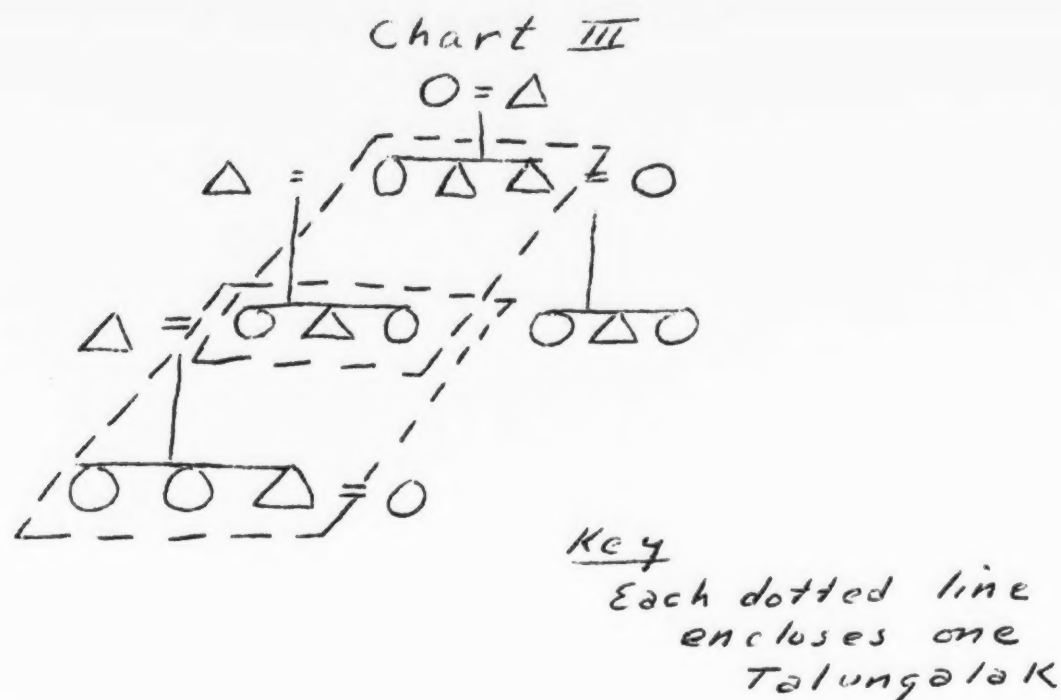 Chart III
Key
Each dotted line
encloses one
Talungalak